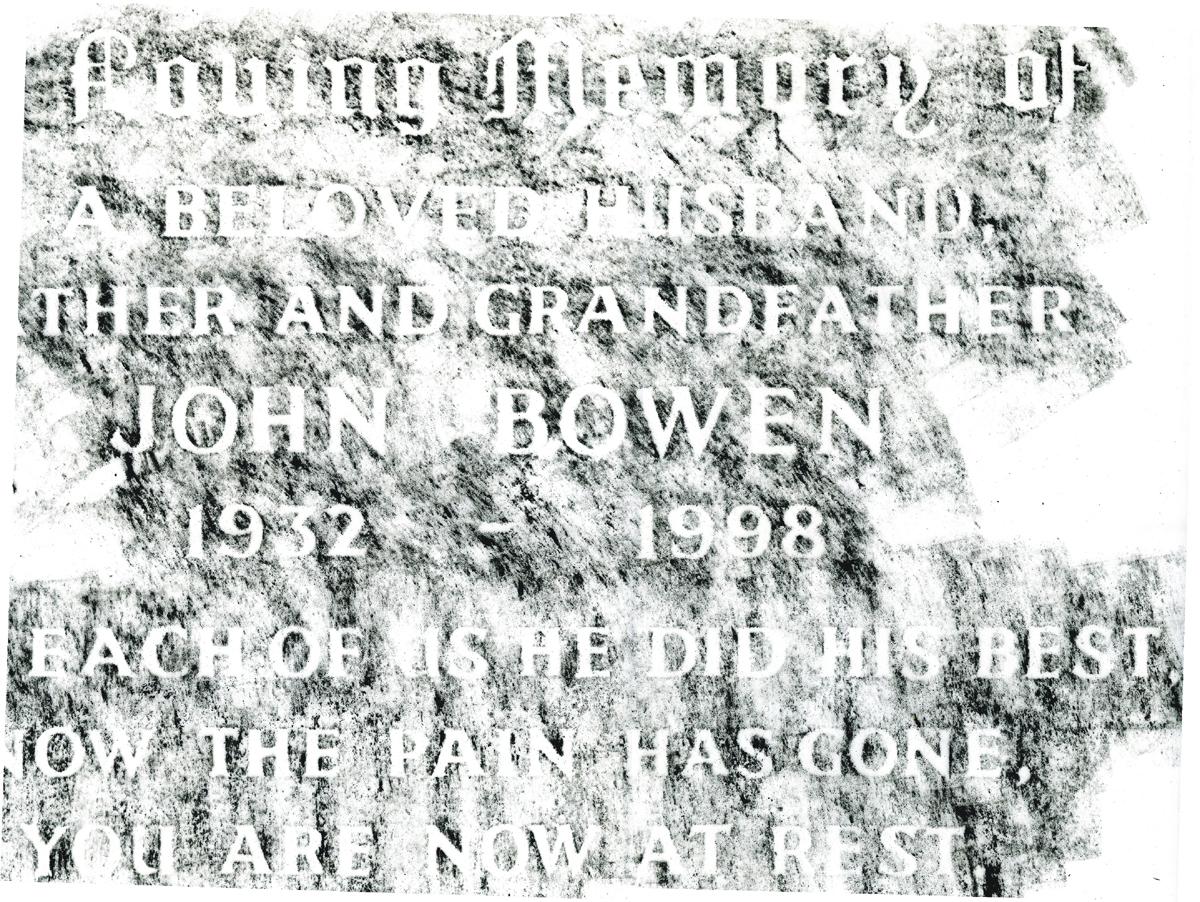 Loving Memory of
A BELOVED HUSBAND,
THER AND GRANDFATHER
JOHN BOWEN
1932 - 1998
EACH OF US HE DID HIS BEST
NOW THE PAIN HAS GONE,
YOU ARE NOW AT REST.